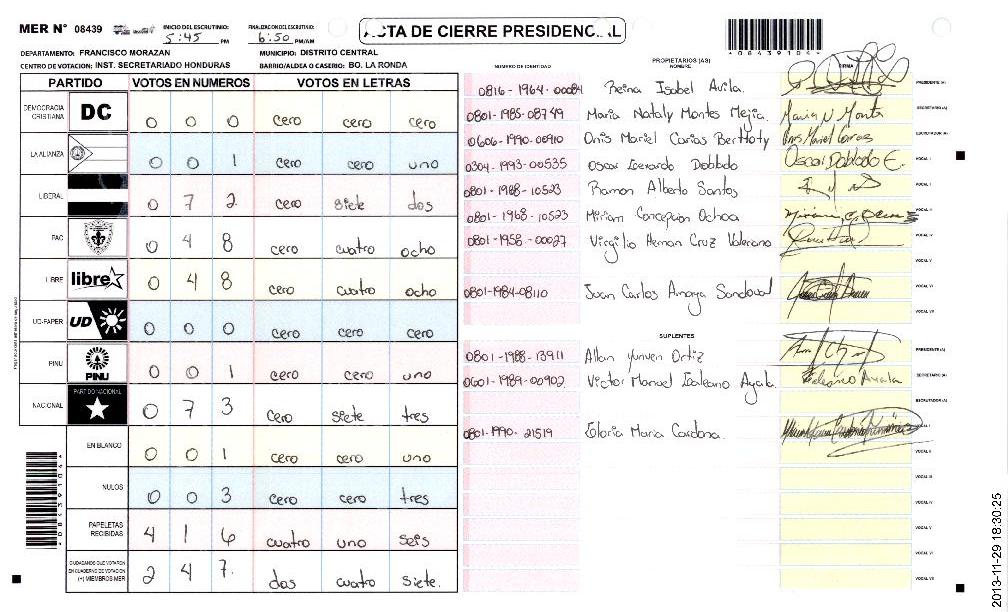 MER N° 08439
INICIO DEL ESCRUTINIO: 5:45 PM
FINALIZACION DEL ESCRUTINIO: 6:50 PM/AM
ACTA DE CIERRE PRESIDENCIAL
*08439104*
DEPARTAMENTO: FRANCISCO MORAZAN
MUNICIPIO: DISTRITO CENTRAL
CENTRO DE VOTACION: INST. SECRETARIADO HONDURAS
BARRIO/ALDEA O CASERIO: BO. LA RONDA
PARTIDO VOTOS EN NUMEROS VOTOS EN LETRAS
DEMOCRACIA CRISTIANA DC 0 0 0 cero cero cero
LA ALIANZA 0 0 1 cero cero uno
LIBERAL 0 7 2 cero siete dos
PAC 0 4 8 cero cuatro ocho
LIBRE libre 0 4 8 cero cuatro ocho
UD-FAPER UD 0 0 0 cero cero cero
PINU PINU 0 0 1 cero cero uno
NACIONAL PARTIDO NACIONAL 0 7 3 cero siete tres
EN BLANCO 0 0 1 cero cero uno
NULOS 0 0 3 cero cero tres
PAPELETAS RECIBIDAS 4 1 6 cuatro uno seis
CIUDADANOS QUE VOTARON EN CUADERNO DE VOTACION (+) MIEMBROS MER 2 4 7. dos cuatro siete.
PROPIETARIOS (AS)
NUMERO DE IDENTIDAD NOMBRE FIRMA
0816-1964-00084 Reina Isabel Avila. PRESIDENTE (A)
0801-1985-08749 Maria Nataly Montes Mejia. Maria N Montes SECRETARIO (A)
0606-1990-00910 Onis Mariel Carias Berthoty Onis Mariel Carias ESCRUTADOR (A)
0304-1993-00535 Oscar Everardo Doblado Oscar Doblado E. VOCAL I
0801-1988-10523 Ramon Alberto Santos VOCAL II
0801-1968-10523 Miriam Concepcion Ochoa VOCAL III
0801-1958-00027 Virgilio Hernan Cruz Valerano VOCAL IV
VOCAL V
0801-1984-08110 Juan Carlos Amaya Sandoval VOCAL VI
VOCAL VII
SUPLENTES
0801-1988-13911 Allan Yunven Ortiz PRESIDENTE (A)
0601-1989-00902 Victor Manuel Galeano Ayala. Galeano Ayala SECRETARIO (A)
ESCRUTADOR (A)
0801-1990-21519 Gloria Maria Cardona. VOCAL I
VOCAL II
VOCAL III
VOCAL IV
VOCAL V
VOCAL VI
VOCAL VII
2013-11-29 18:30:25